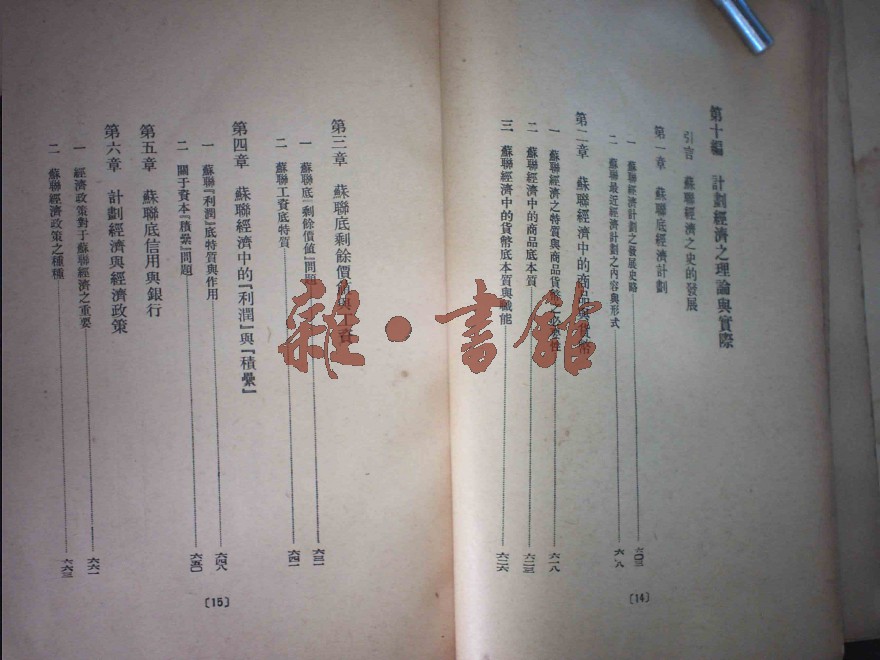 第十編 計劃經濟之理論與實際
引言 蘇聯經濟之史的發展
第一章 蘇聯底經濟計劃
一 蘇聯經濟計劃之發展史略 六〇三
二 蘇聯最近經濟計劃之內容與形式 六〇八
第二章 蘇聯經濟中的商品與貨幣
一 蘇聯經濟之特質與商品貨幣之必然性 六一八
二 蘇聯經濟中的商品底本質 六二三
三 蘇聯經濟中的貨幣底本質與職能 六二六
〔14〕
第三章 蘇聯底剩餘價值與工資
一 蘇聯底『剩餘價値』問題 六三一
二 蘇聯工資底特質 六四一
第四章 蘇聯經濟中的『利潤』與『積纍』
一 蘇聯『利潤』底特質與作用 六四八
二 關于資本『積纍』問題 六五〇
第五章 蘇聯底信用與銀行
第六章 計劃經濟與經濟政策
一 經濟政策對于蘇聯經濟之重要 六六一
二 蘇聯經濟政策之種種 六六三
〔15〕
雜·書館